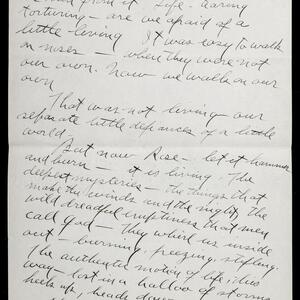 from it. Life - daring
torturing - are we afraid of a
little living It was easy to walk
on - when they were not
our own. Now we walk on our
own
That was not living our
separate little defiances of a little
world.
But now Rose - let it hammer
and burn - it is living. The
deepest mysteries - the things that
make the winds and the nights, the
wild dreadful emptiness that men
call God - they whirl us inside
out - burning, freezing, stifling.
The authentic motion of life, this
way - lost in a halloo of storms
heels up, heads down